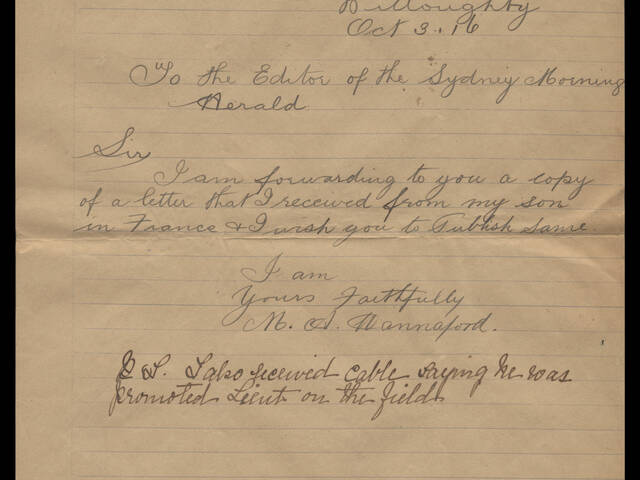 Willoughby
Oct 3. 16
To the Editor of the Sydney Morning
Herald
Sir
I am forwarding to you a copy
of a letter that I received from my son
in France & I wish you to Publish Same.
I am
Yours Faithfully
M. A. Hannaford.
P S. I also received cable saying he was
promoted Lieut on the field